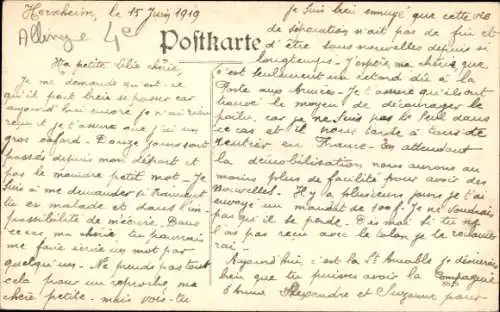 Herxheim, le 15 Juin 1919
4e
Postkarte
Ma petite Lilie chérie,
Je me demande qu'est-ce
qu'il peut bien se passer car
aujourd'hui encore je n'ai rien
reçu et je t'assure que j'ai un
gros cafard. Douze jours sont
passés depuis mon départ et
pas le moindre petit mot. Je
suis à me demander si vraiment
tu es malade et dans l'im-
possibilité de m'écrire. Dans
ce cas ma chérie tu pourrais
me faire écrire un mot par
quelqu'un. Ne prends pas tout
cela pour un reproche ma
chère petite - mais vois-tu
je suis bien ennuyé que cette vie
de séparation n'ait pas de fin et
d'être sans nouvelles depuis si
longtemps. J'espère ma chérie que
c'est seulement un retard dû à la
Poste aux Armées. Je t'assure qu'ils ont
trouvé le moyen de décourager le
poilu, car je ne suis pas le seul dans
ce cas et il nous tarde à tous de
rentrer en France. En attendant
la démobilisation nous aurons au
moins plus de facilité pour avoir des
nouvelles. Il y a plusieurs jours je t'ai
envoyé un mandat de 100f. Je ne voudrais
pas qu'il se perde. Dis-moi si tu ne
l'as pas reçu avec le talon je le réclame-
rai.
Aujourd'hui, c'est la St Amable je désirerais
bien que tu puisses avoir la compagnie
d'Anna Alexandre et Suzanne pour